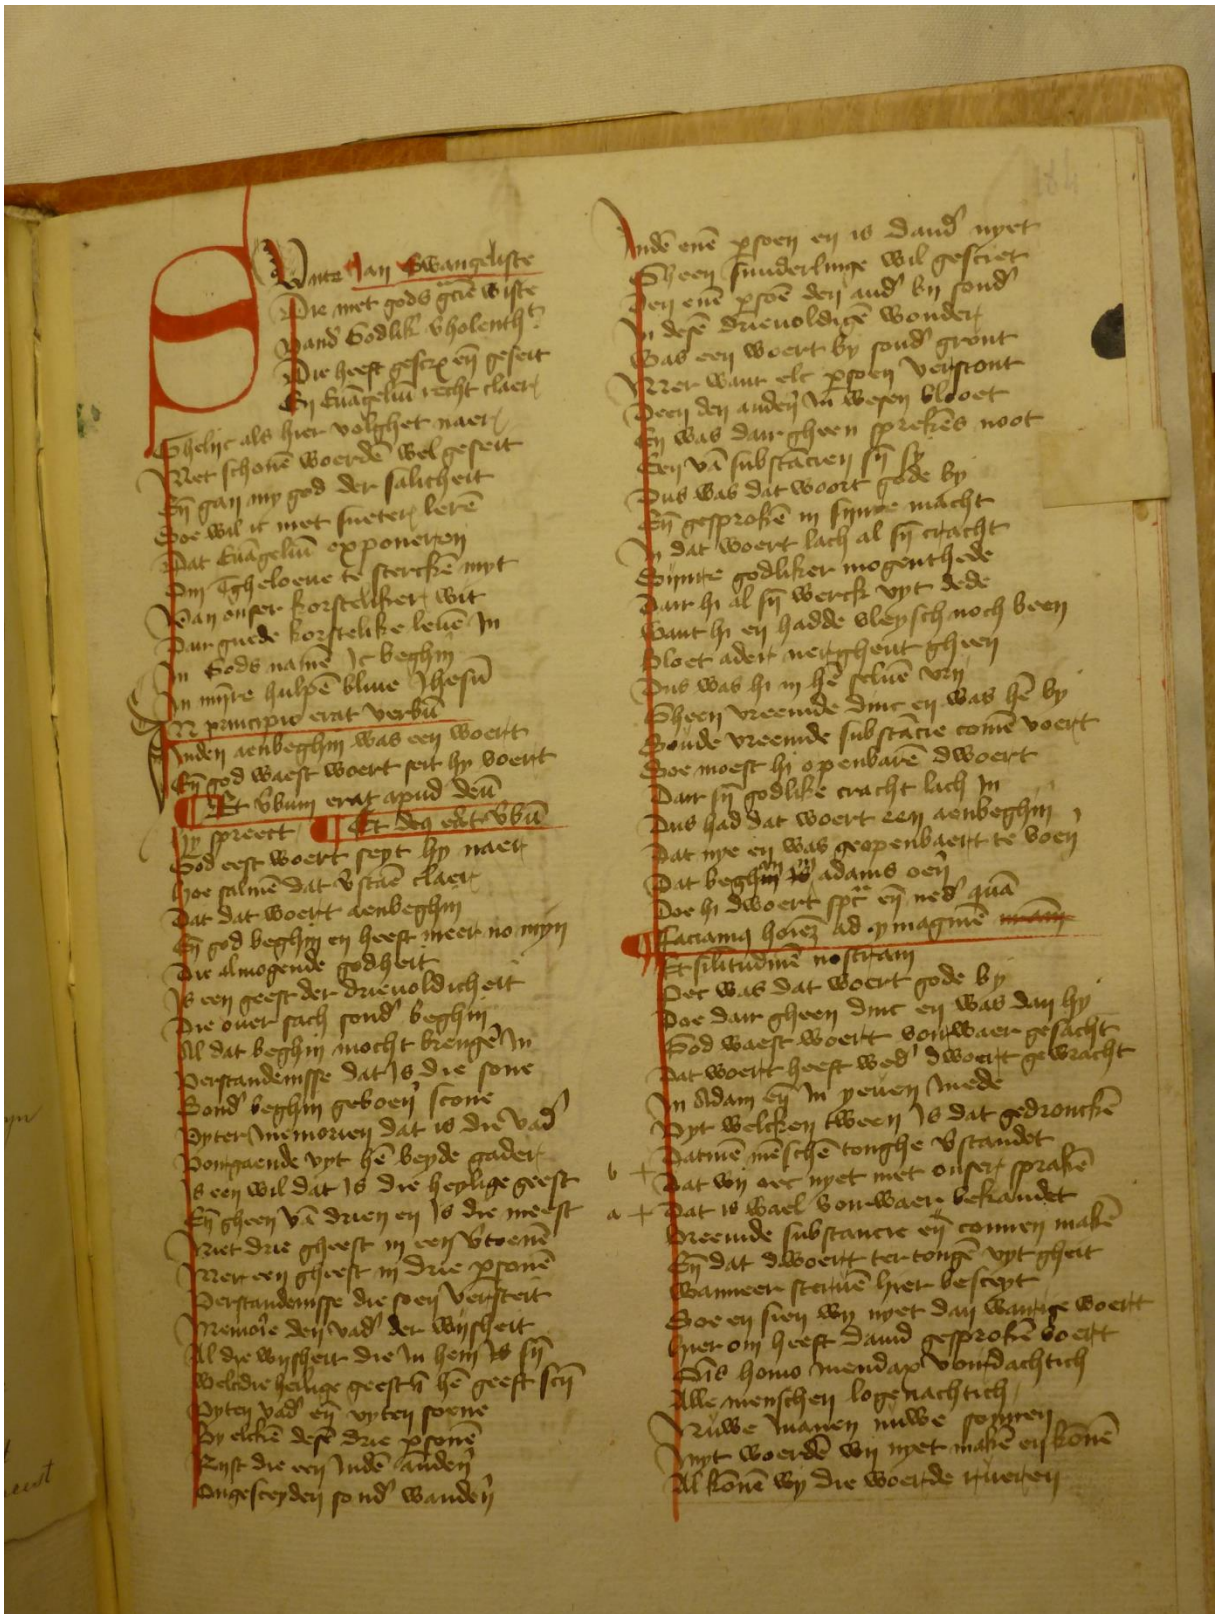 Sunte Jan Ewangeliste
Die met gods gracīe wiste
Vand' Godlik' v'holenth't
Die heeft gescr' eñ geseit
Eñ Ewāgeliū recht claer
Ghelijc als hier volghet naer
Met schonē woerdē wel geseit
Eñ gan my god der salicheit
Soe wil ic met sueter lerē
Dat Ewāgeliū exponeren
Om tgheloeue te sterckē myt
Van onser korsteliker wit
Dair guede korstelike leuē in
In Gods namē Ic beghin
In mijnre hulpē bliue Jhesū
IN principio erat verbū
Inden aenbeghin was een woert
Eñ god waest woert seit hy voert
Et v'bum erat apud deū
Hy spreect Et deus erat v'bū
God eest woert seyt hy naer
Hoe salmē dat v'staē claer
Dat dat woert aenbeghin
Eñ god beghin en heeft meer no myn
Die almogende godheit
Is een geest der drieuoldicheit
Die ouer sach sond' beghin
Al dat beghin mocht brengē in
Verstandenisse dat Is die sone
Sond' beghin geboen' scone
Vyter memorien dat is die vad'
Vortgaende vyt hē beyde gader
Is een wil dat Is die heylige geest
Eñ gheen vā drien en Is die meest
Niet drie gheest in een v'toenē
Mer een gheest in drie p'sonē
Verstandenisse die soen versteit
Memorie den vad' der wijsheit
Al die wijsheit die in hem Is sijn
Welc die heilige geest hē geeft scijn
Vyten vad' eñ vyten soene
By elckē desē drie p'sonē
Rust die een Indē anderē
Ongesceyden sond' wanderē
Indē enē p'soen en is dand' nyet
Gheen sunderlinge wil gesciet
Den enē p'soē den and' by sond'
In desē drieuoldigē wonder
Was een woert by sond' gront
Mer want elc p'soen verstont
Deen den anderē in wesen bloet
En was dair gheen sprekēs noot
Een vā substācien sijn sy
Dus was dat woort gode by
Eñ gesprokē in sijnre macht
In dat woert lach al sijn cracht
Sijnre godliker mogenthede
Dair hi al sijn werck vyt dede
Want hi en hadde vleysch noch been
Bloet ader nerghent gheen
Dus was hi in hē seluē vry
Gheen vreemde dinc en was hē by
Soude vreemde substācie comē voert
Soe moest hi openbarē dwoert
Dair sijn godlike cracht lach in
Dus had dat woert een aenbeghin
Dat nye en was geopenbaert te voen'
Dat beghin in adams oen'
Doe hi dwoert sp'c eñ ned' quā
Faciamus hoīez ad ymaginē
Et silitudinē nostram
Dit was dat woert gode by
Doe dair gheen dinc en was dan hy
God waest woert vorwaer gesacht
Dat woert heeft wed' dwoert gewracht
In Adam eñ in yeuen mede
Vyt welcken tween Is dat gedronckē
Datmē mēschē tonghe v'standet
b + Dat wy oec nyet met onser sprakē
a + Dat is wael vorwaer bekandet
Vreemde substancie eñ connen makē
Eñ dat dwoert ter tongē vyt gheit
Wanneer scriuē hier besceyt
Soe en sien wy nyet dan wantige woert
Hier om heeft dauid gesprokē voert
O'is homo mendax vordachtich
Alle menschen logenachtich
Nuwe manen nuwe sonnen
Myt woerdē wy nyet makē en konē
Al konē wy die woerde rueren